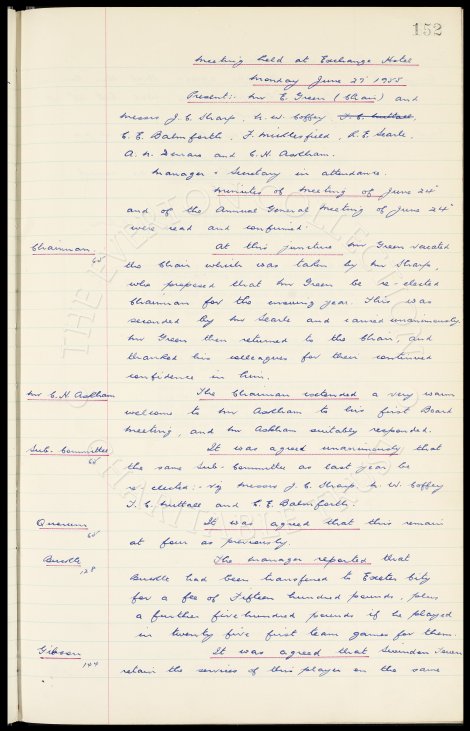 152
Meeting held at Exchange Hotel
Monday June 27 1955
Present:- Mr E. Green (Chair) and
Messrs J. C. Sharp, N. W. Coffey, T. C. Nuttall,
C. E. Balmforth, F. Micklesfield, R. F. Searle,
A. N. Denaro and C. H. Askham.
Manager & Secretary in attendance.
Minutes of Meeting of June 24
and of the Annual General Meeting of June 24
were read and confirmed.
Chairman 65 At this juncture Mr Green vacated
the Chair which was taken by Mr Sharp,
who proposed that Mr Green be re-elected
Chairman for the ensuing year. This was
seconded by Mr Searle and carried unanimously.
Mr Green then returned to the Chair, and
thanked his colleagues for their continued
confidence in him.
Mr C. H. Askham The Chairman extended a very warm
welcome to Mr Askham to his first Board
Meeting, and Mr Askham suitably responded.
Sub-Committee 66 It was agreed unanimously that
the same Sub-Committee as last year, be
re-elected:- viz Messrs J. C. Sharp, N. W. Coffey
T. C. Nuttall and C. E. Balmforth.
Quorum 65 It was agreed that this remain
at four as previously.
Buckle 128 The Manager reported that
Buckle had been transferred to Exeter City
for a fee of Fifteen hundred pounds, plus
a further five hundred pounds if he played
in twenty five first team games for them.
Gibson 144 It was agreed that Swindon Town
retain the services of this player on the same
THE EVERTON COLLECTION
CHARITABLE TRUST